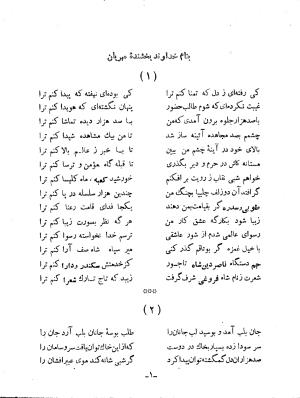 بنام خداوند بخشندهٔ مهربان
(۱)
کی رفته‌ای ز دل که تمنا کنم ترا
کی بوده‌ای نهفته که پیدا کنم ترا
غیبت نکرده‌ای که شوم طالب حضور
پنهان نگشته‌ای که هویدا کنم ترا
با صد هزار جلوه برون آمدی که من
با صد هزار دیده تماشا کنم ترا
چشمم بصد مجاهده آئینه ساز شد
تا من بیک مشاهده شیدا کنم ترا
بالای خود در آینهٔ چشم من ببین
تا با خبر ز عالم بالا کنم ترا
مستانه کاش در حرم و دیر بگذری
تا قبله گاه مؤمن و ترسا کنم ترا
خواهم شبی نقاب ز رویت برافکنم
خورشید کعبه، ماه کلیسا کنم ترا
گر افتد آن دو زلف چلیپا بچنگ من
چندین هزار سلسله در پا کنم ترا
طوبی و سدره گر بقیامت بمن دهند
یکجا فدای قامت رعنا کنم ترا
زیبا شود بکارگه عشق کار من
هر گه نظر بصورت زیبا کنم ترا
رسوای عالمی شدم از شور عاشقی
ترسم خدا نخواسته رسوا کنم ترا
با خیل غمزه گر بوثاقم گذر کنی
میر سپاه شاه صف آرا کنم ترا
جم دستگاه ناصردین شاه تاجور
کز خدمتش سکندر و دارا کنم ترا
شعرت ز نام شاه فروغی شرف گرفت
زیبد که تاج تارک شعرا کنم ترا
***
(۲)
جان بلب آمد و بوسید لب جانان را
طلب بوسهٔ جانان بلب آرد جان را
سر سودا زده بسپار بخاک در دوست
که از این خاک توان یافت سر و سامان را
صد هزاران دل گمگشته توان پیدا کرد
گر شبی شانه کند موی عبیرافشان را
-۱-